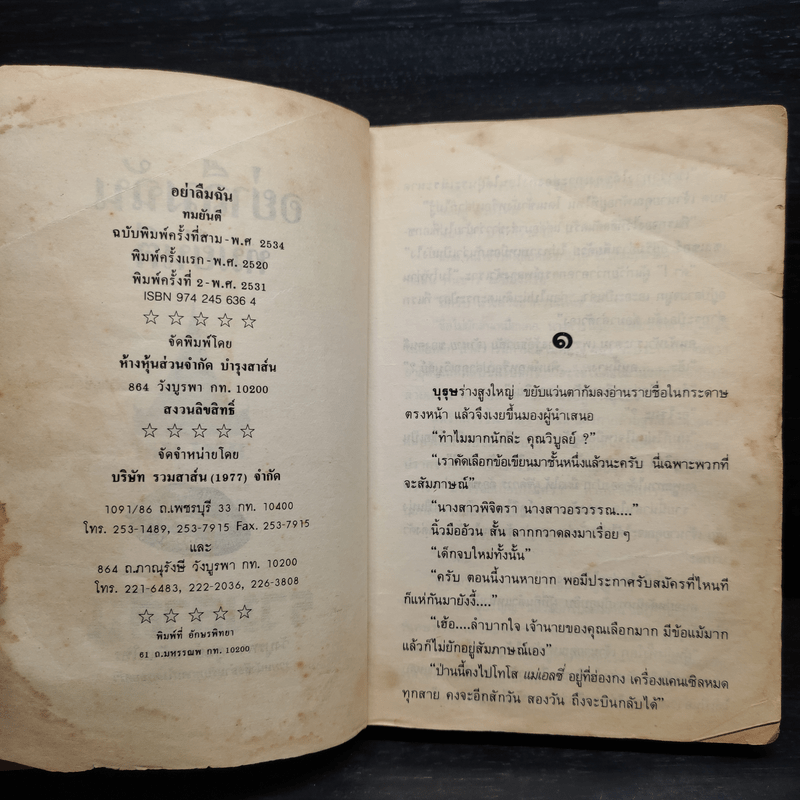 อย่าลืมฉัน
ทมยันตี
ฉบับพิมพ์ครั้งที่สาม-พ.ศ 2534
พิมพ์ครั้งแรก-พ.ศ. 2520
พิมพ์ครั้งที่ 2-พ.ศ. 2531
ISBN 974 245 636 4
☆ ☆ ☆ ☆ ☆
จัดพิมพ์โดย
ห้างหุ้นส่วนจำกัด บำรุงสาส์น
864 วังบูรพา กท. 10200
สงวนลิขสิทธิ์
☆ ☆ ☆ ☆ ☆
จัดจำหน่ายโดย
บริษัท รวมสาส์น (1977) จำกัด
1091/86 ถ.เพชรบุรี 33 กท. 10400
โทร. 253-1489, 253-7915 Fax. 253-7915
และ
864 ถ.ภาณุรังษี วังบูรพา กท. 10200
โทร. 221-6483, 222-2036, 226-3808
☆ ☆ ☆ ☆ ☆
พิมพ์ที่ อักษรพิทยา
61 ถ.มหรรณพ กท. 10200
๑
บุรุษร่างสูงใหญ่ ขยับแว่นตาก้มลงอ่านรายชื่อในกระดาษ
ตรงหน้า แล้วจึงเงยขึ้นมองผู้นำเสนอ
“ทำไมมากนักล่ะ คุณวิบูลย์ ?”
“เราคัดเลือกข้อเขียนมาชั้นหนึ่งแล้วนะครับ นี่เฉพาะพวกที่
จะสัมภาษณ์”
“นางสาวพิจิตรา นางสาวอรวรรณ....”
นิ้วมืออ้วน สั้น ลากกวาดลงมาเรื่อยๆ
“เด็กจบใหม่ทั้งนั้น”
“ครับ ตอนนี้งานหายาก พอมีประกาศรับสมัครที่ไหนที
ก็แห่กันมายังงี้....”
“เฮ้อ....ลำบากใจ เจ้านายของคุณเลือกมาก มีข้อแม้มาก
แล้วก็ไม่ยักอยู่สัมภาษณ์เอง”
“ป่านนี้คงไปโทโส แม่เอลซี่ อยู่ที่ฮ่องกง เครื่องแคนเซิลหมด
ทุกสาย คงจะอีกสักวัน สองวัน ถึงจะบินกลับได้”